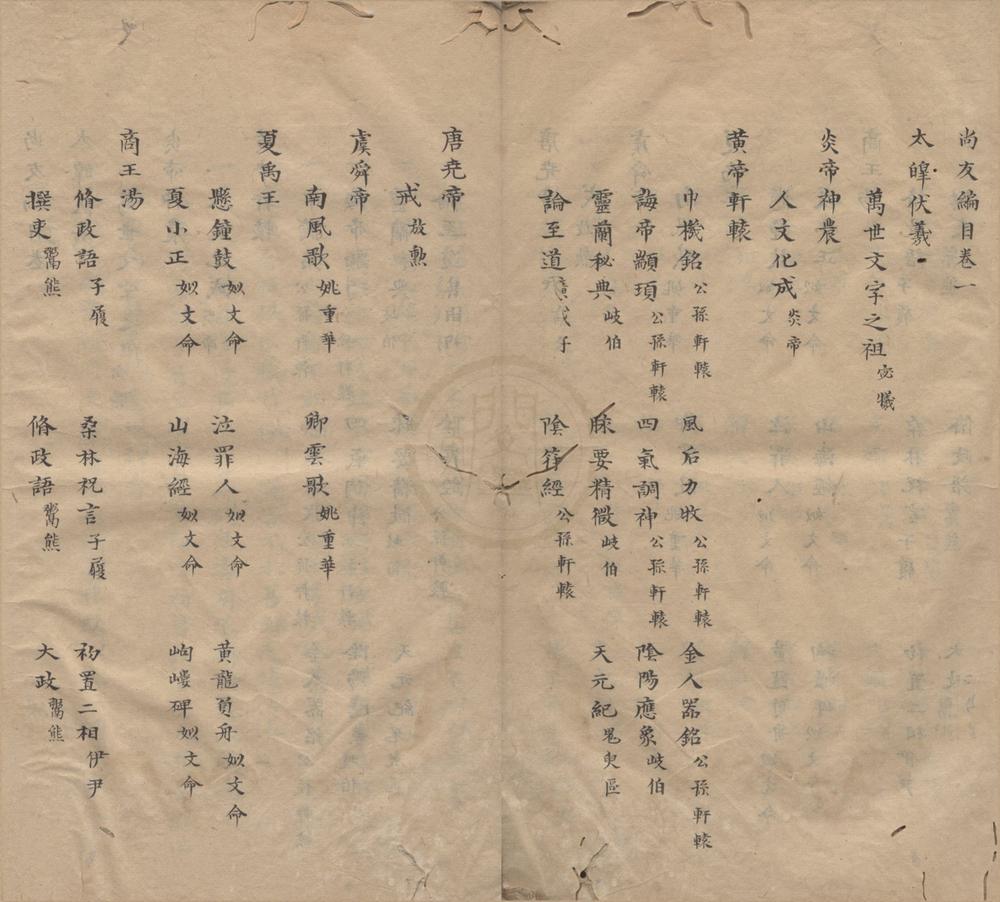 尚友編目卷一
太皥伏羲
萬世文字之祖 宓犧
炎帝神農
人文化成 炎帝
黃帝軒轅
巾機銘 公孫軒轅 風后力牧 公孫軒轅 金人器銘 公孫軒轅
誨帝顓頊 公孫軒轅 四氣調神 公孫軒轅 陰陽應象 岐伯
靈蘭秘典 岐伯 脉要精微 岐伯 天元紀 鬼臾區
論至道 廣成子 陰符經 公孫軒轅
唐尭帝
戒 放勲
虞舜帝
南風歌 姚重華 卿雲歌 姚重華
夏禹王
懸鐘鼓 姒文命 泣罪人 姒文命 黃龍負舟 姒文命
夏小正 姒文命 山海經 姒文命 岣嶁碑 姒文命
商王湯
脩政語 子履 桑林祝言 子履 初置二相 伊尹
撰吏 鬻熊 脩政語 鬻熊 大政 鬻熊